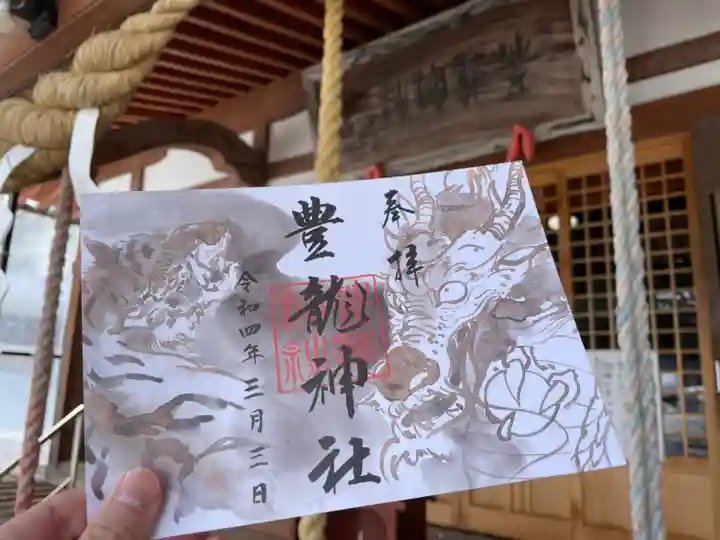 奉拝
豊龍神社
令和四年三月三日